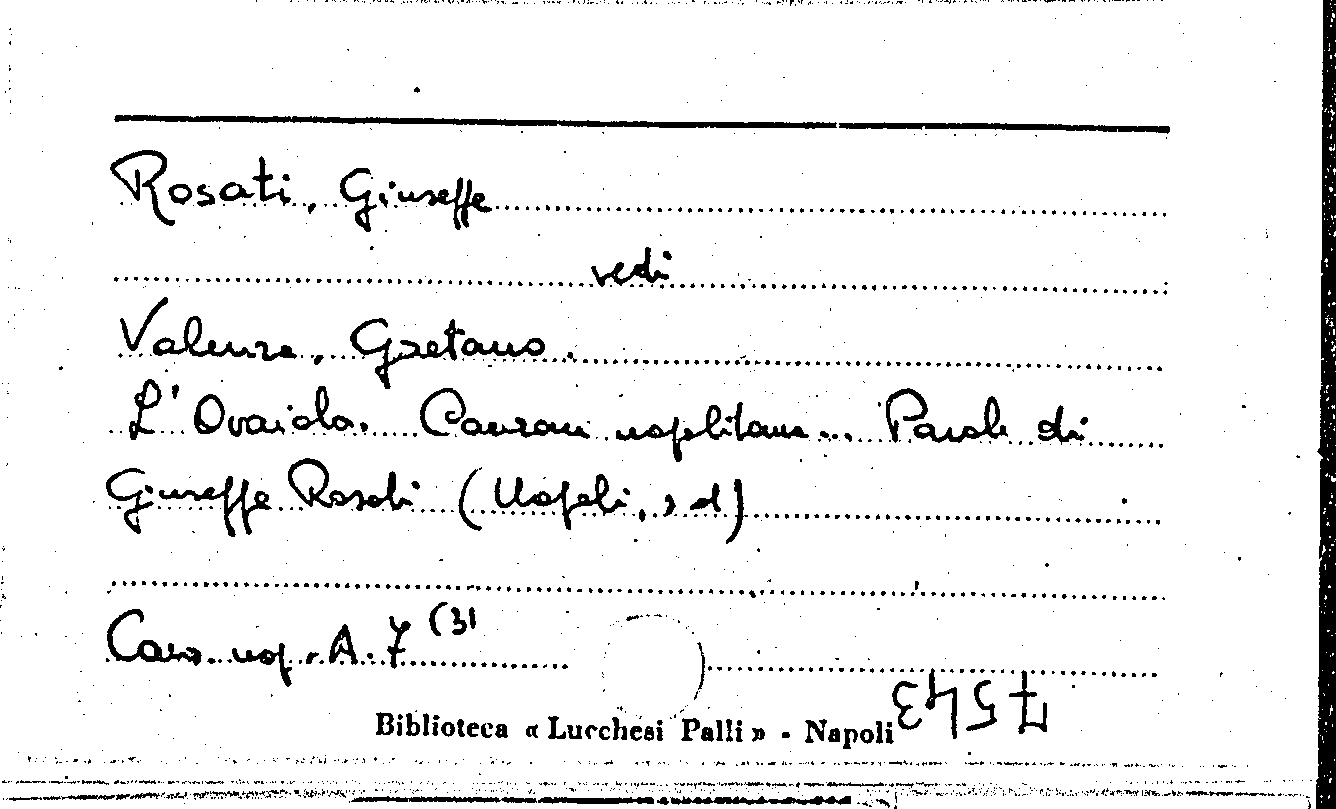 Rosati, Giuseppe
vedi
Valenza, Gaetano.
L'Ovaiola. Canzone napolitana... Parole di
Giuseppe Rosati (Napoli, s d)
Canz. nap. A. 7 (3)
7543
Biblioteca « Lucchesi Palli » - Napoli